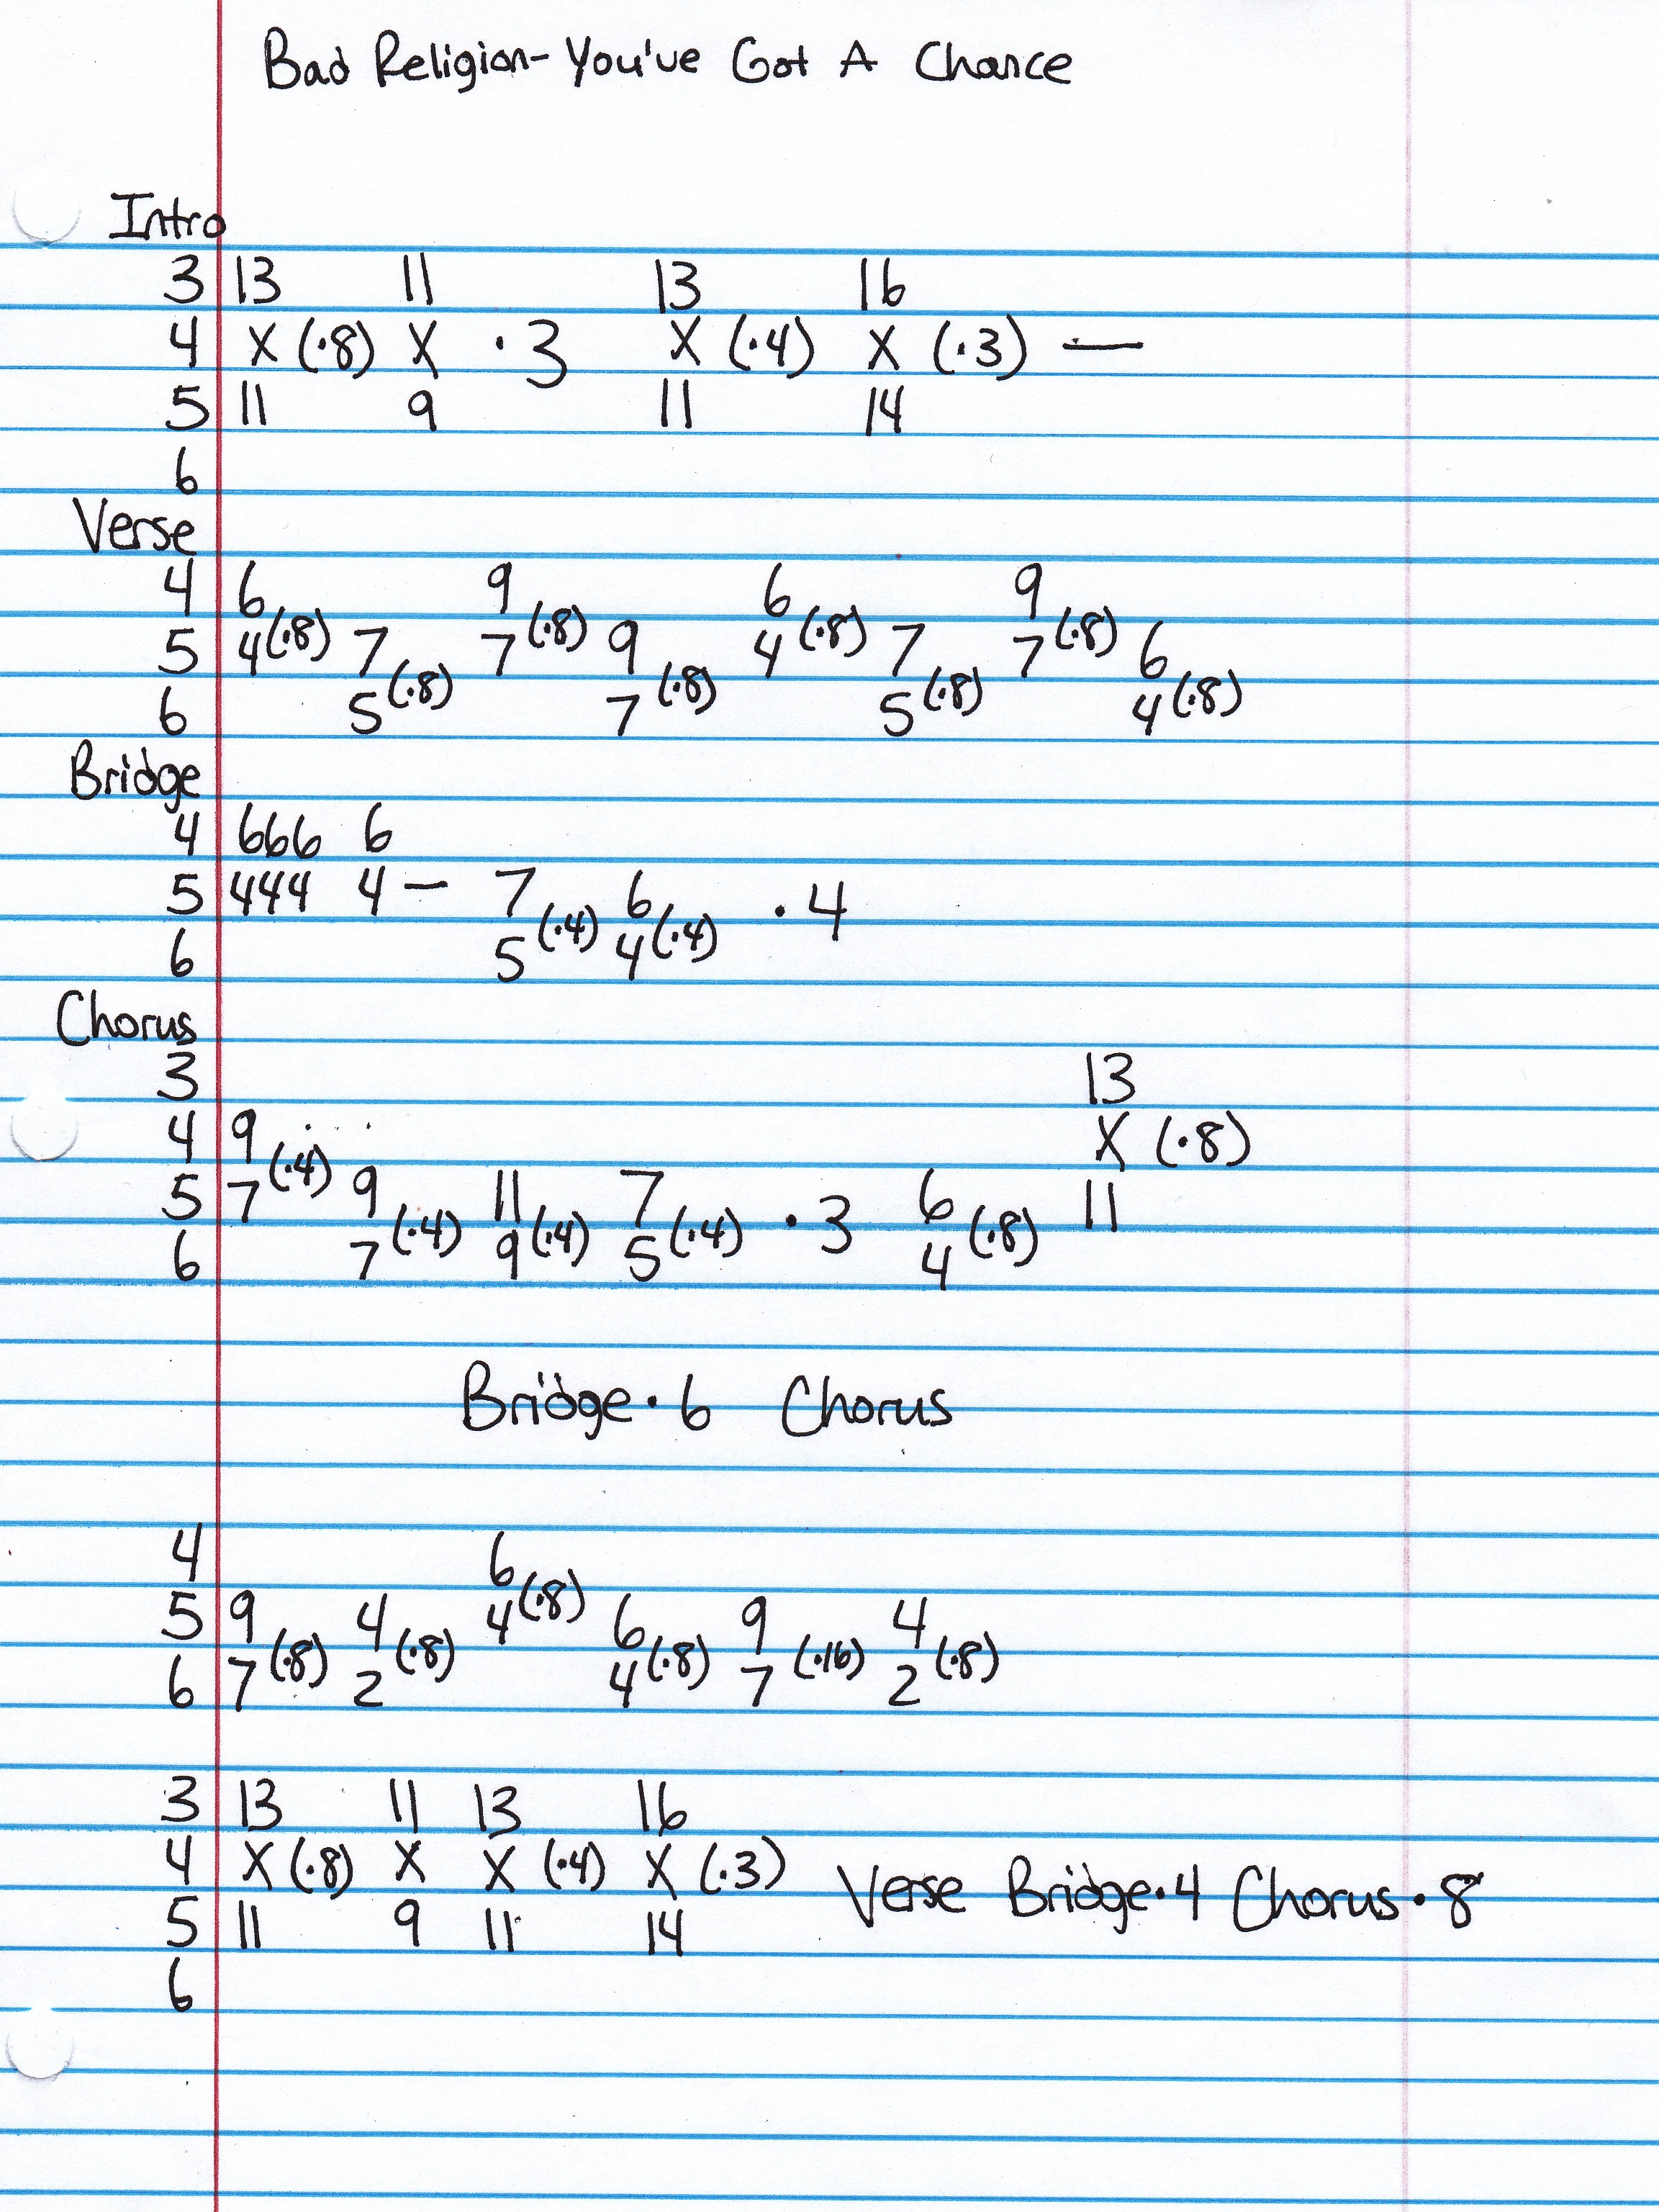 Bad Religion- You've Got A Chance
Intro
3 13 11 13 16
4 X (·8) X ·3 X (·4) X (·3) —
5 11 9 11 14
6
Verse
4 6 9 6 9
5 4(·8) 7 7(·8) 9 4(·8) 7 7(·8) 6
6 5(·8) 7(·8) 5(·8) 4(·8)
Bridge
4 666 6
5 444 4 — 7 6 ·4
6 5(·4) 4(·4)
Chorus
3 13
4 9 X (·8)
5 7(·4) 9 11 7 ·3 6 11
6 7(·4) 9(·4) 5(·4) 4(·8)
Bridge·6 Chorus
4 6
5 9 4 4(·8) 6 9 4
6 7(·8) 2(·8) 4(·8) 7(·16) 2(·8)
3 13 11 13 16
4 X (·8) X X (·4) X (·3) Verse Bridge·4 Chorus·8
5 11 9 11 14
6